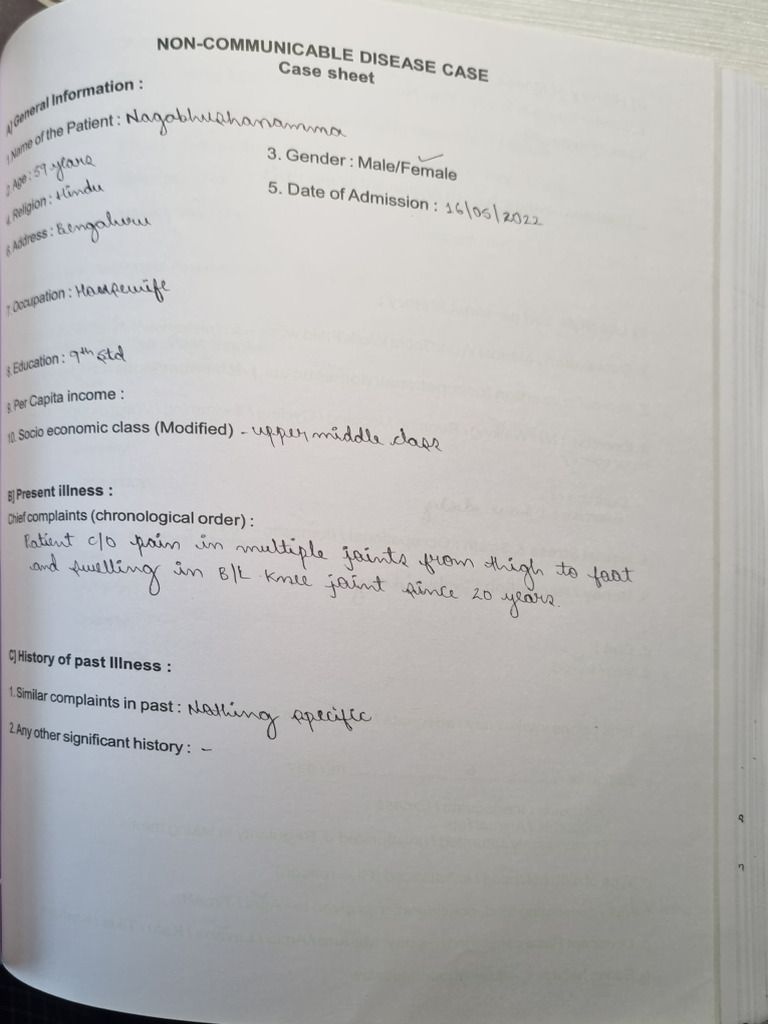 NON-COMMUNICABLE DISEASE CASE
Case sheet
A] General Information :
1. Name of the Patient : Nagabhushanamma
2. Age : 59 years
3. Gender : Male/Female ✓
4. Religion : Hindu
5. Date of Admission : 16/05/2022
6. Address : Bengaluru
7. Occupation : Housewife
8. Education : 9th Std
9. Per Capita income :
10. Socio economic class (Modified) - upper middle class
B] Present illness :
Chief complaints (chronological order) :
Patient c/o pain in multiple joints from thigh to foot
and swelling in B/L knee joint since 20 years.
C] History of past Illness :
1. Similar complaints in past : Nothing specific
2. Any other significant history : -